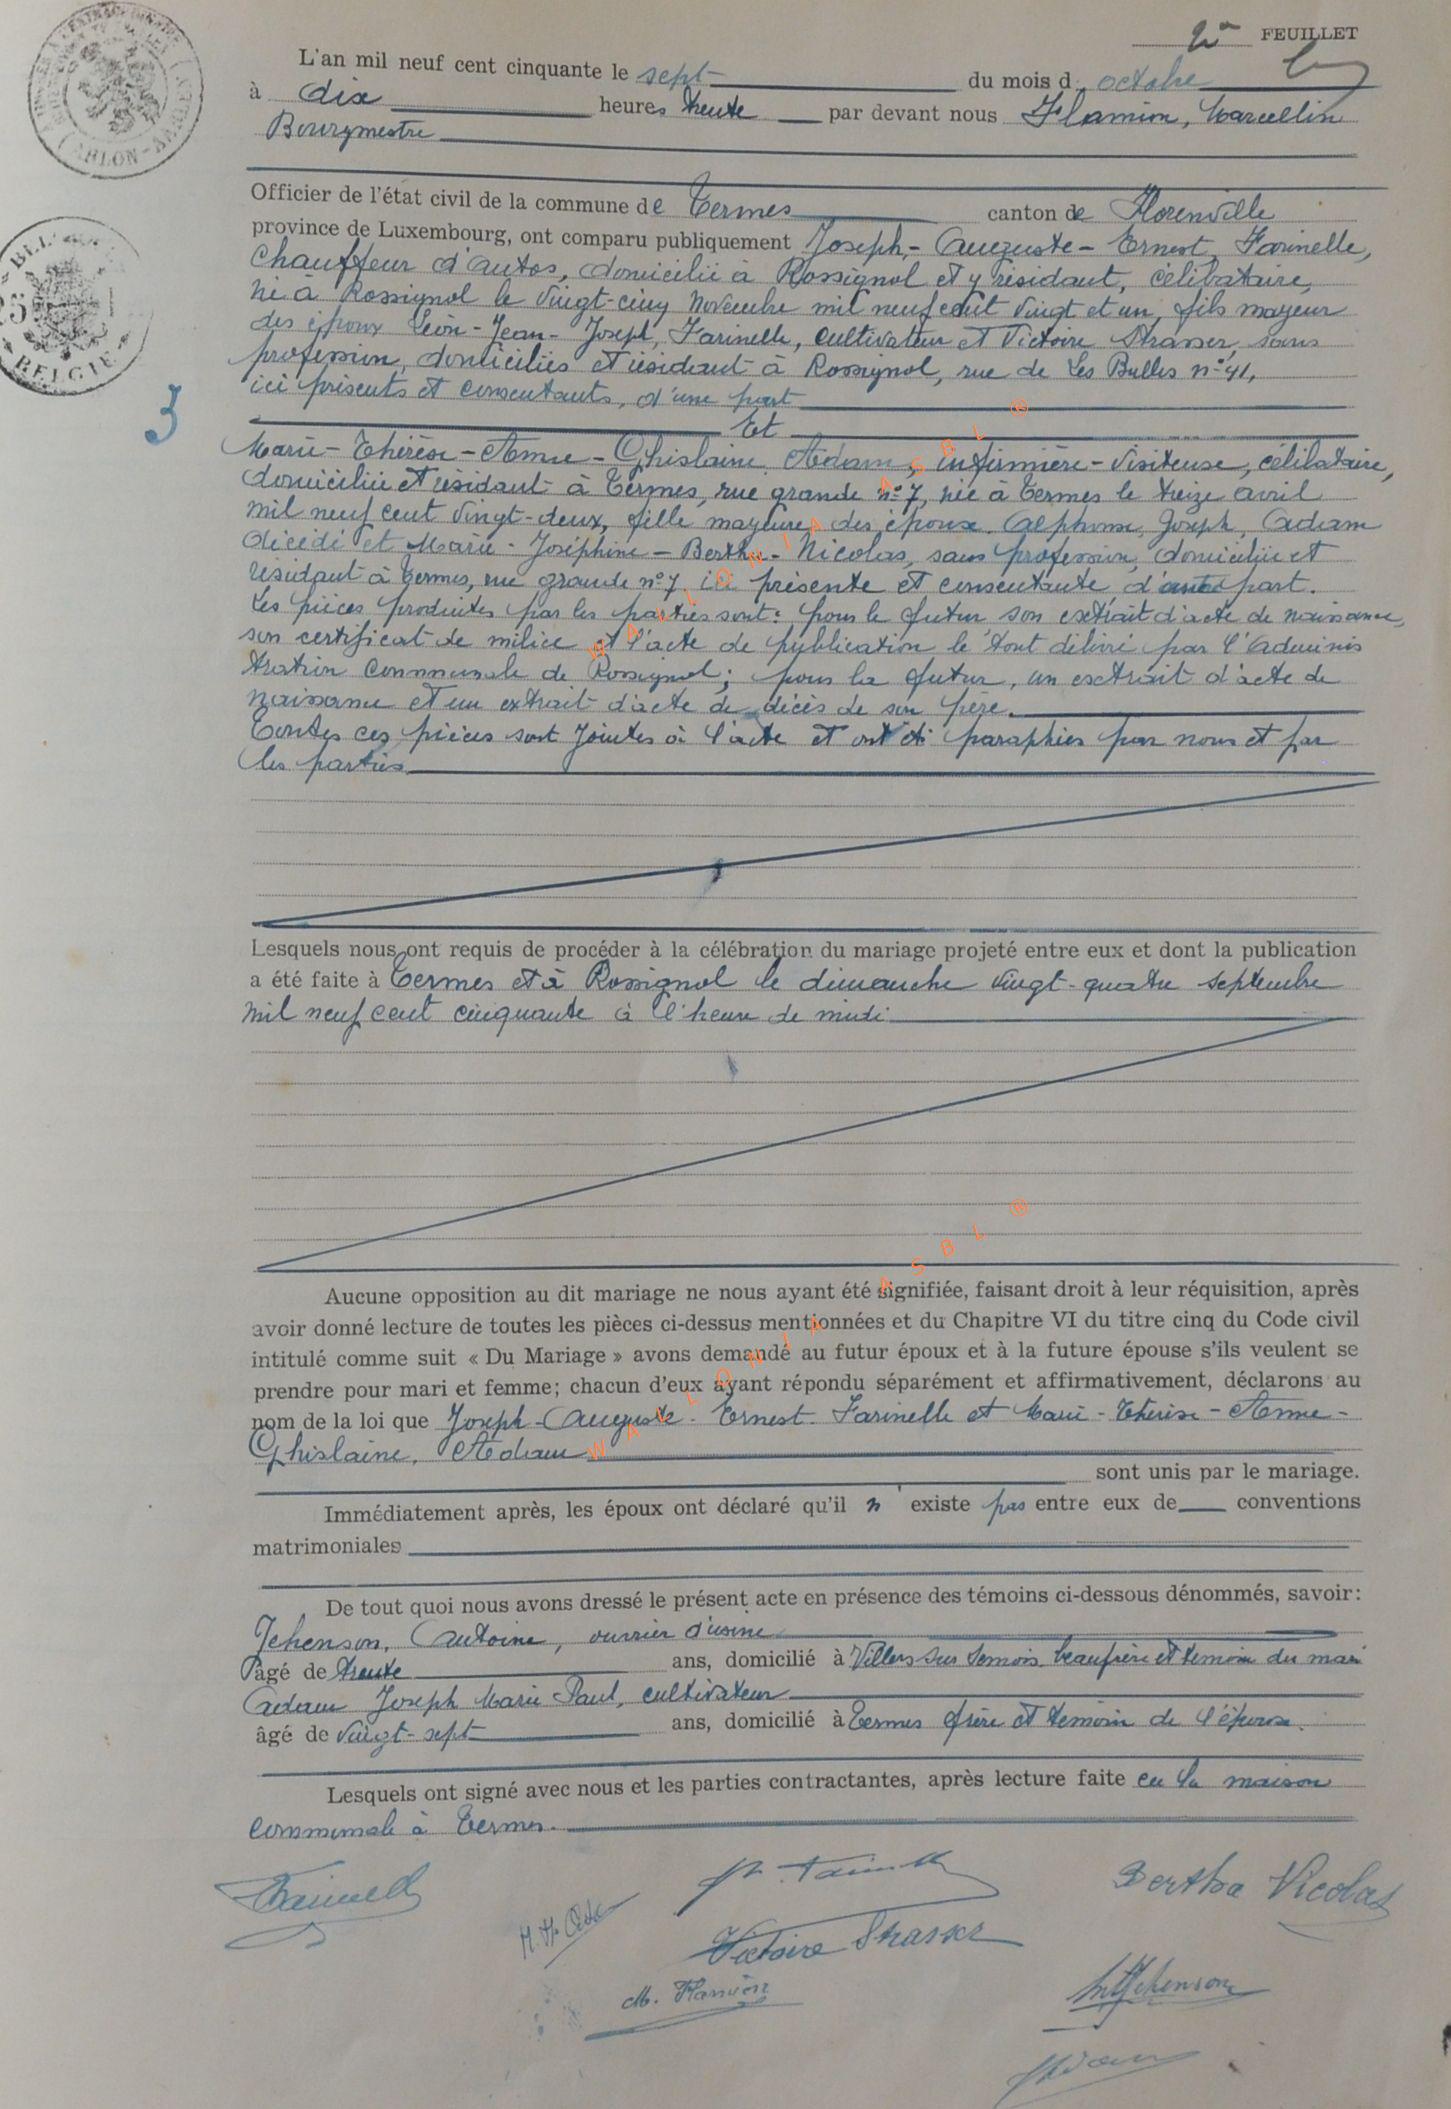 2e FEUILLET
L'an mil neuf cent cinquante le sept du mois d octobre
à dix heures trente par devant nous Flamion, Marcellin
Bourgmestre
Officier de l'état civil de la commune de Termes canton de Florenville
province de Luxembourg, ont comparu publiquement Joseph-Auguste-Ernest, Farinelle,
chauffeur d'autos, domicilié à Rossignol et y résidant, célibataire,
né à Rossignol le vingt-cinq novembre mil neuf cent vingt et un, fils majeur
des époux Léon-Jean-Joseph, Farinelle, cultivateur et Victoire Strasser, sans
profession, domiciliés et résidant à Rossignol, rue de Les Bulles n° 41,
ici présents et consentants, d'une part
Et
3
Marie-Thérèse-Anne-Ghislaine Adam, infirmière-visiteuse, célibataire,
domiciliée et résidant à Termes, rue grande n° 7, née à Termes le treize avril
mil neuf cent vingt-deux, fille majeure des époux Alphonse, Joseph, Adam
décédé et Marie-Joséphine-Berthe-Nicolas, sans profession, domiciliée et
résidant à Termes, rue grande n° 7 ici présente et consentante d'autre part.
Les pièces produites par les parties sont: pour le futur son extrait d'acte de naissance,
son certificat de milice et l'acte de publication le tout délivré par l'adminis
tration communale de Rossignol; pour la futur, un extrait d'acte de
naissance et un extrait d'acte de décès de son père.
Toutes ces pièces sont jointes à l'acte et ont été paraphées par nous et par
les parties
Lesquels nous ont requis de procéder à la célébration du mariage projeté entre eux et dont la publication
a été faite à Termes et à Rossignol le dimanche vingt-quatre septembre
mil neuf cent cinquante à l'heure de midi
Aucune opposition au dit mariage ne nous ayant été signifiée, faisant droit à leur réquisition, après
avoir donné lecture de toutes les pièces ci-dessus mentionnées et du Chapitre VI du titre cinq du Code civil
intitulé comme suit « Du Mariage » avons demandé au futur époux et à la future épouse s'ils veulent se
prendre pour mari et femme; chacun d'eux ayant répondu séparément et affirmativement, déclarons au
nom de la loi que Joseph-Auguste-Ernest-Farinelle et Marie-Thérèse-Anne-
Ghislaine, Adam
sont unis par le mariage.
Immédiatement après, les époux ont déclaré qu'il n'existe pas entre eux de conventions
matrimoniales
De tout quoi nous avons dressé le présent acte en présence des témoins ci-dessous dénommés, savoir:
Jehenson, Antoine, ouvrier d'usine
âgé de trente ans, domicilié à Villers sur Semois beaufrère et témoin du mari
Adam Joseph Marie Paul, cultivateur
âgé de vingt-sept ans, domicilié à Termes frère et témoin de l'épouse.
Lesquels ont signé avec nous et les parties contractantes, après lecture faite en la maison
communale à Termes.
Bertha Nicolas
Victoire Strasser
M. Flamion
Jehenson
WALLONIA ASBL ®
WALLONIA ASBL ®
ARLON
BELGIE